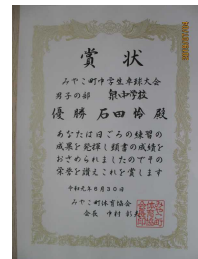 賞状
みやこ町中学生卓球大会
男子の部 泉中学校
優勝 石田怜殿
あなたは日ごろの練習の
成果を発揮し頭書の成績を
おさめられましたのでその
栄誉を讃えこれを賞します
令和元年6月30日
みやこ町体育協会
会長 中村